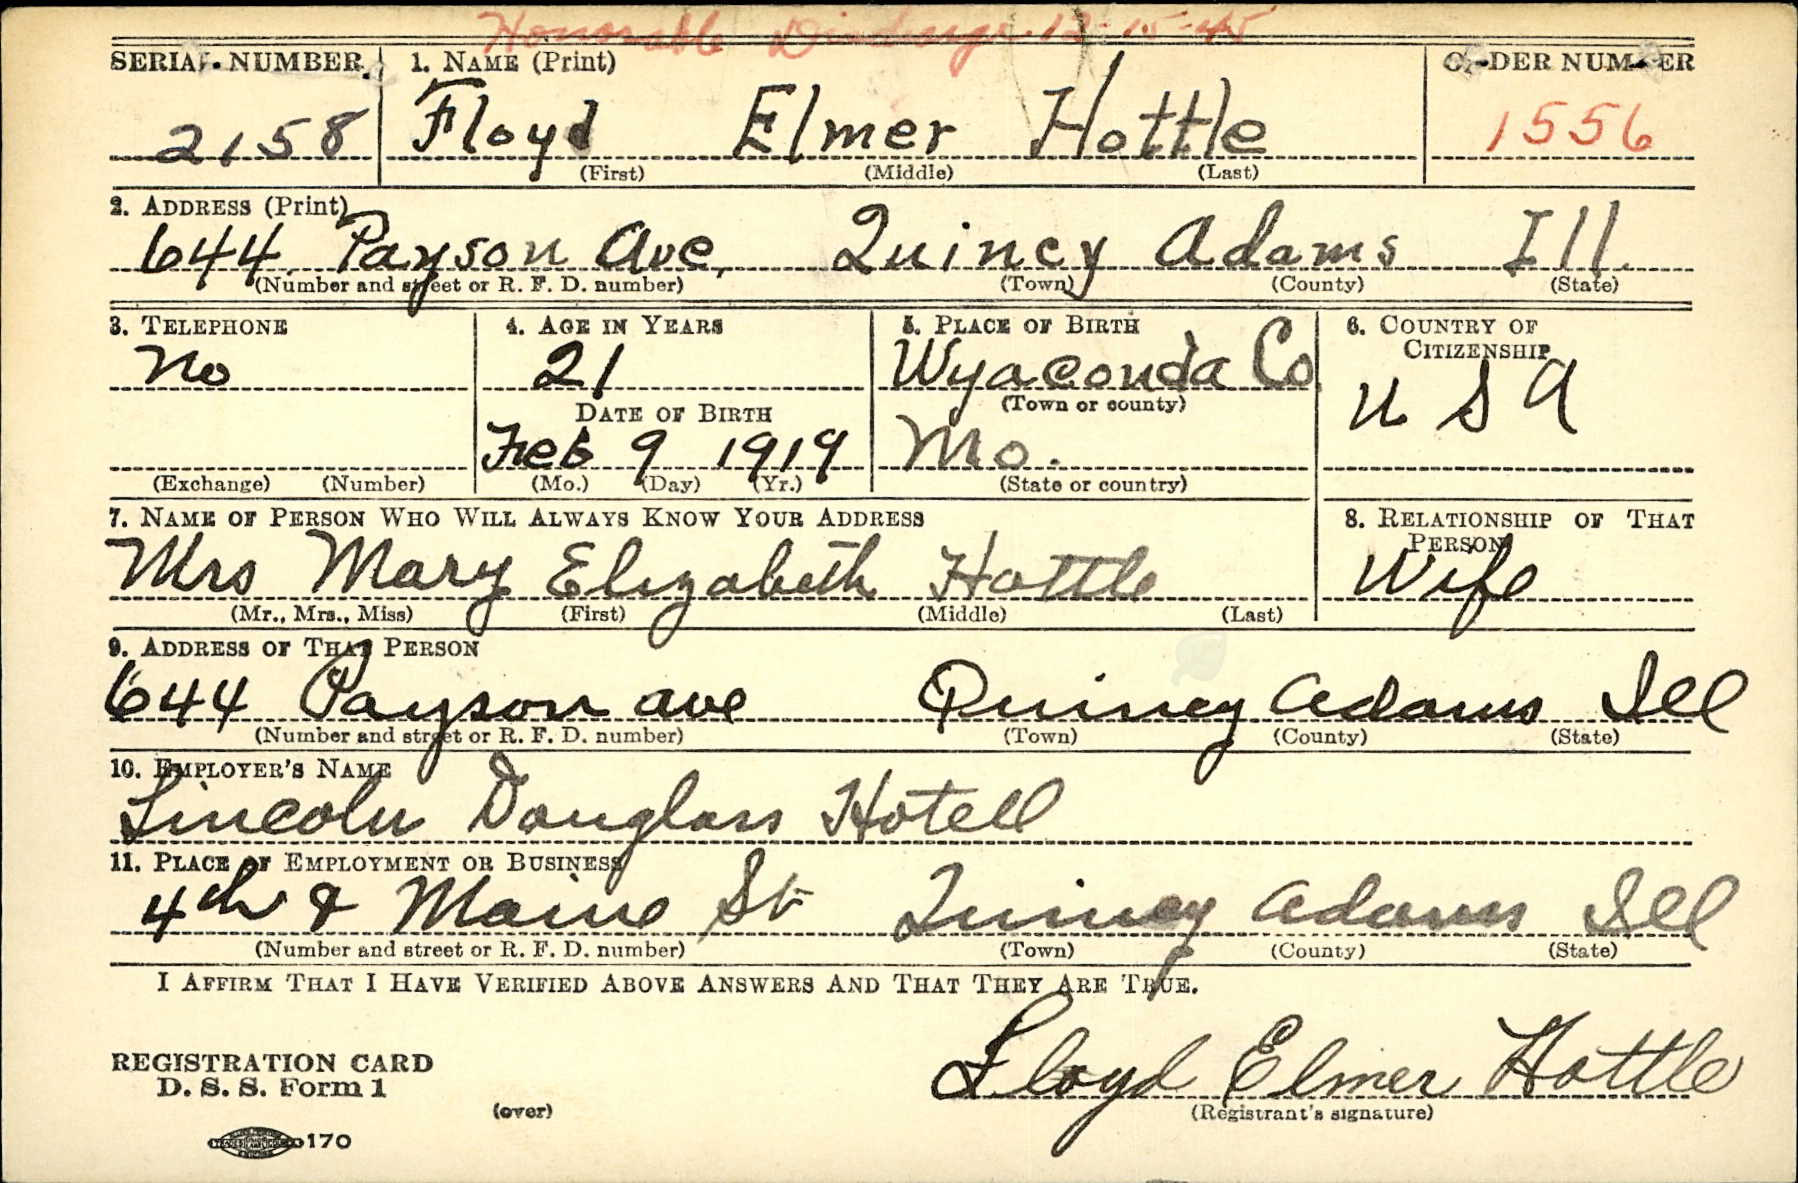 Honorable Discharge 12-15-45
SERIAL NUMBER 1. NAME (Print) ORDER NUMBER
2158 Floyd Elmer Hottle 1556
(First) (Middle) (Last)
2. ADDRESS (Print)
644 Payson Ave, Quincy Adams Ill.
(Number and street or R. F. D. number) (Town) (County) (State)
3. TELEPHONE 4. AGE IN YEARS 5. PLACE OF BIRTH 6. COUNTRY OF CITIZENSHIP
No 21 Wyaconda Co. U S A
DATE OF BIRTH (Town or county)
Feb 9 1919 Mo.
(Exchange) (Number) (Mo.) (Day) (Yr.) (State or country)
7. NAME OF PERSON WHO WILL ALWAYS KNOW YOUR ADDRESS 8. RELATIONSHIP OF THAT PERSON
Mrs Mary Elizabeth Hottle Wife
(Mr., Mrs., Miss) (First) (Middle) (Last)
9. ADDRESS OF THAT PERSON
644 Payson ave Quincy Adams Ill
(Number and street or R. F. D. number) (Town) (County) (State)
10. EMPLOYER'S NAME
Lincoln Douglass Hotell
11. PLACE OF EMPLOYMENT OR BUSINESS
4th & Maine St Quincy Adams Ill
(Number and street or R. F. D. number) (Town) (County) (State)
I AFFIRM THAT I HAVE VERIFIED ABOVE ANSWERS AND THAT THEY ARE TRUE.
Floyd Elmer Hottle
(Registrant's signature)
REGISTRATION CARD
D. S. S. Form 1
(over)
170